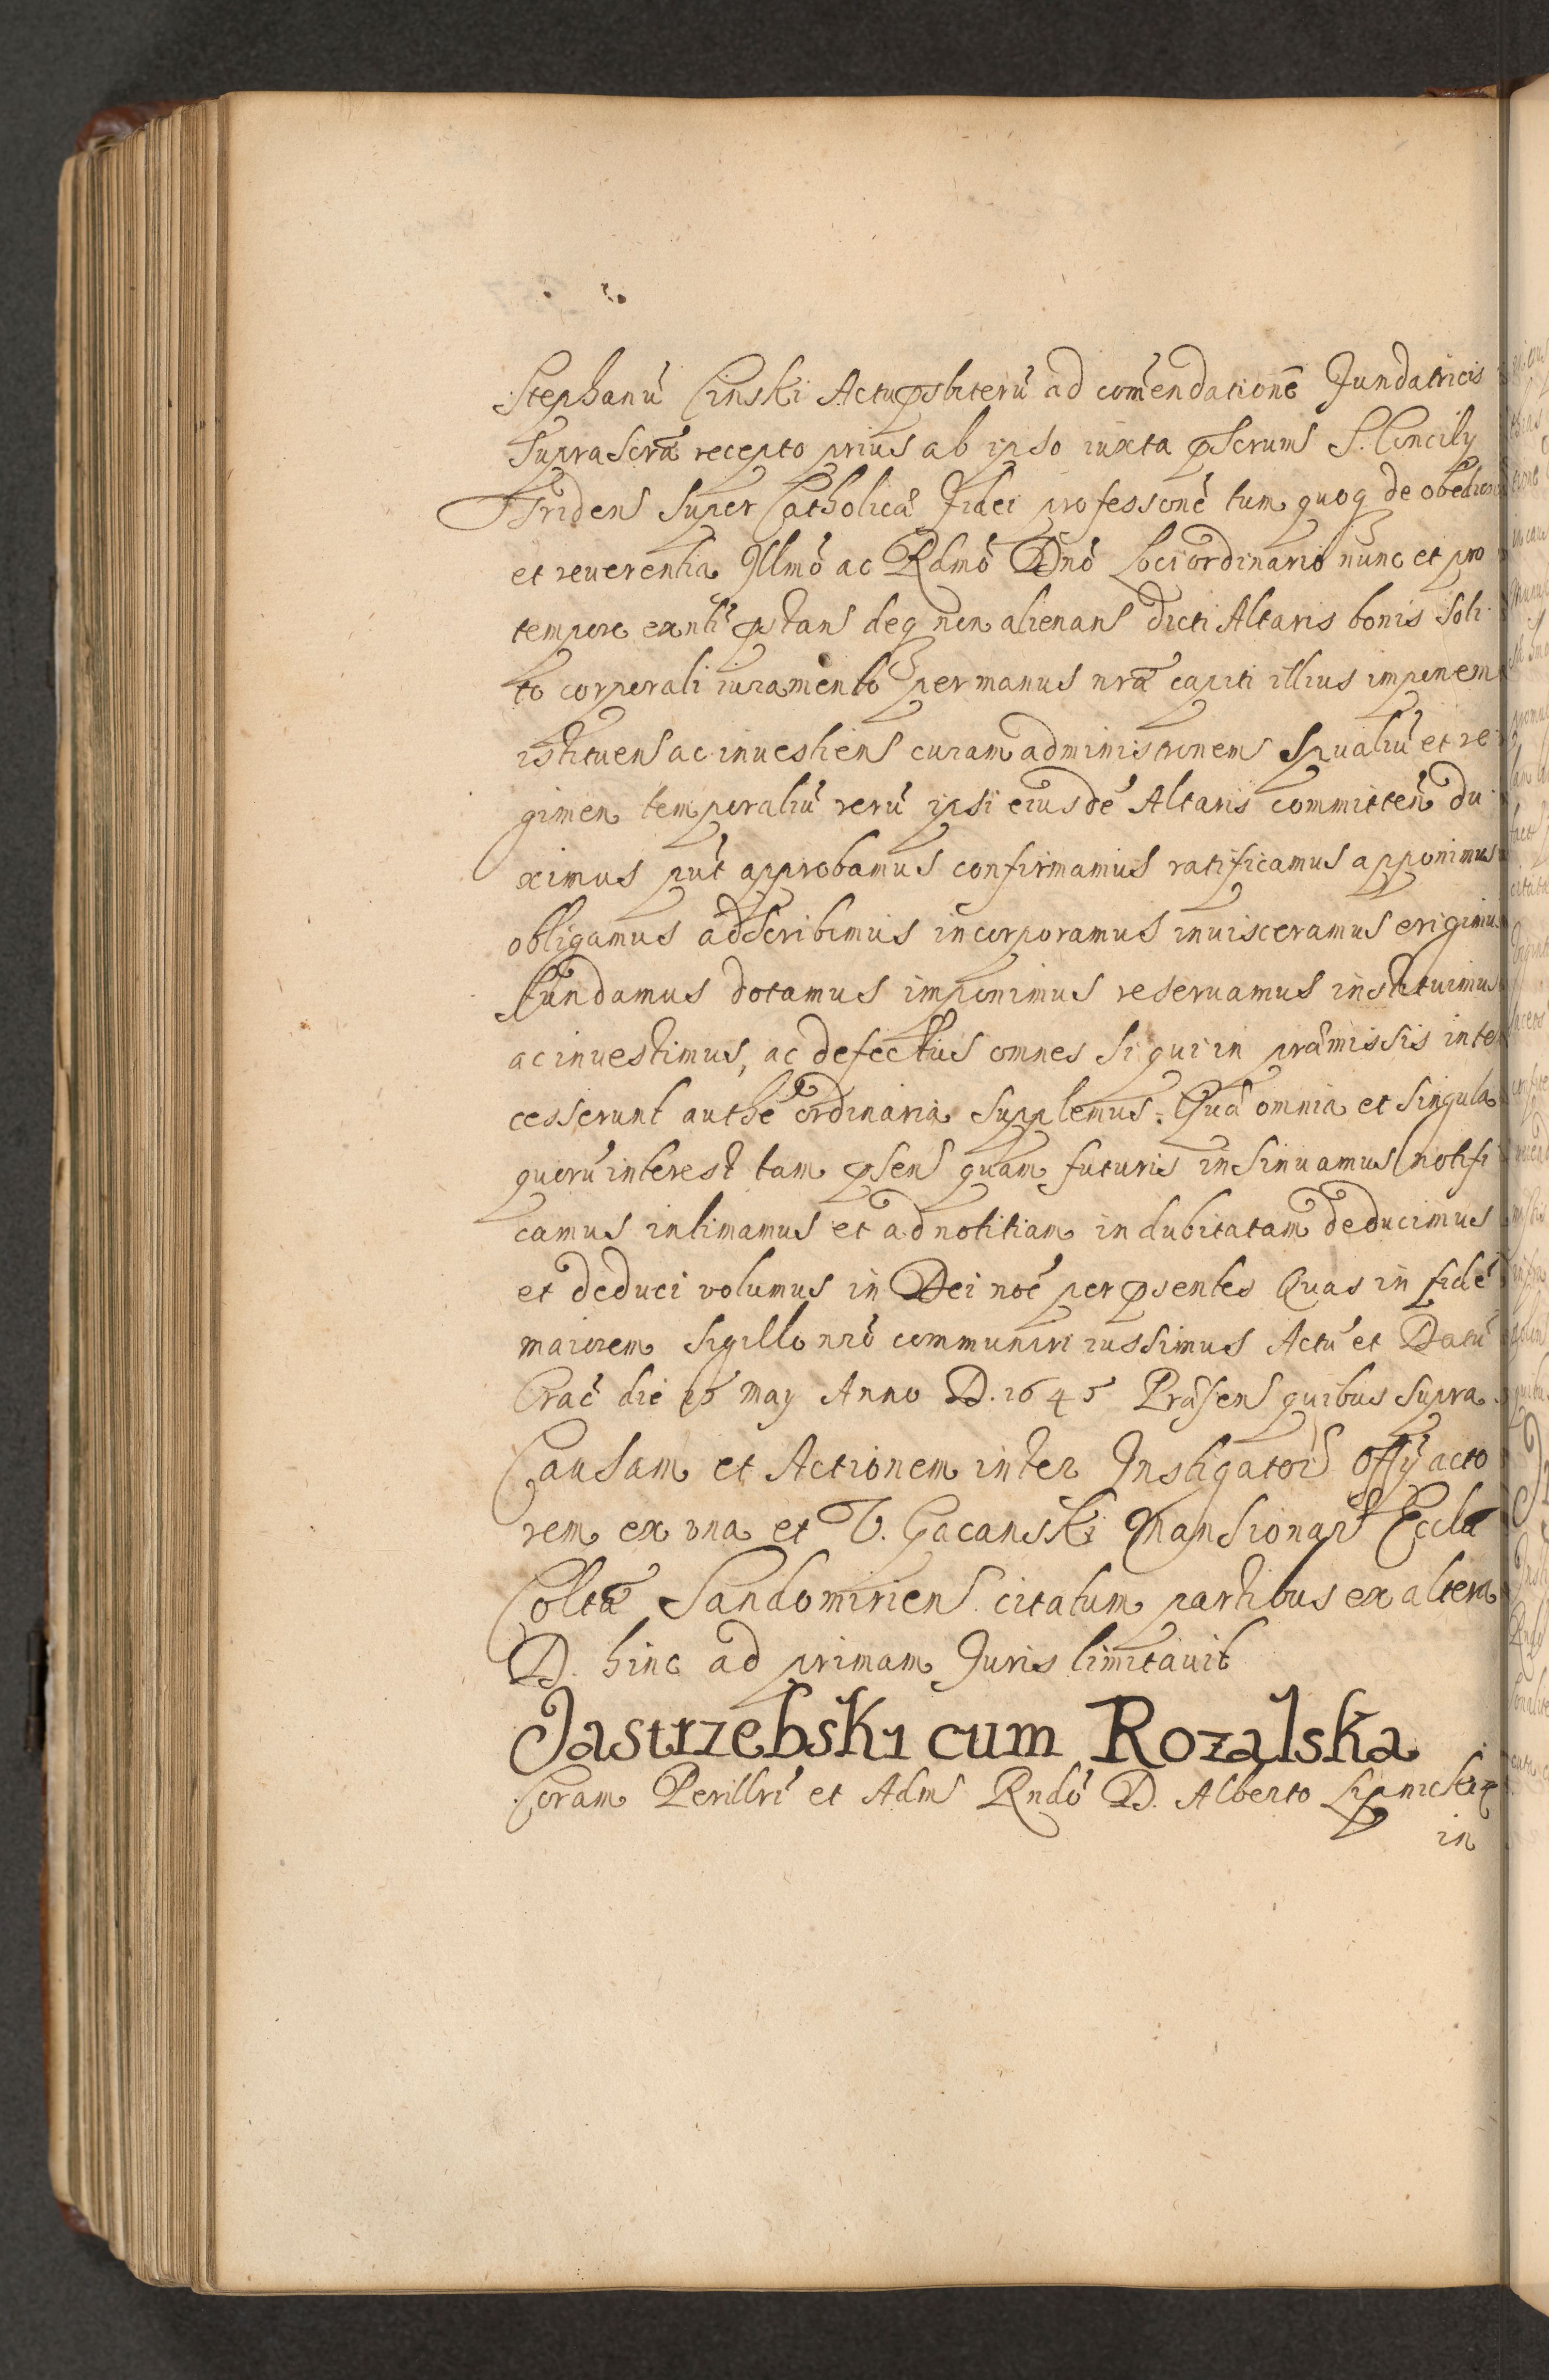 Stephanũ Cinski Actupsbiterũ ad comẽndationẽ Fundatricis
suprascrã recepto prius ab ipso iuxta pscrums S. Concily
Tridens super Catholicã Fidei professonẽ tum quoq de obedien
et reuerentia Illmõ ac Rdmõ Dnõ Loci ordinario nunc et pro
tempore exnti pstans deq non alienans dicti Altaris bonis soli
to corporali iuramento per manus nrã capiti illius imponem
istituens ac inuestiens curam administronems spualiũ et re
gimen temporaliũ rerũ ipsi eiusdẽ Altaris committeñ du
ximus put approbamus confirmamus ratificamus apponimus
obligamus adscribimus incorporamus inuisceramus erigimus
fundamus dotamus imponimus reseruamus instituimus
ac inuestimus, ac defectus omnes si qui in prãmissis inte
cesserunt authẽ ordinaria supplemus. Quã omnia et singula
quorũ interest tam psens quam futuris insinuamus notifi
camus intimamus et ad notitiam indubitatam deducimus
et deduci volumus in Dei noẽ per psentes Quas in fidẽ
maiorem sigillo nrõ communiri iussimus Actũ et Datũ
Crač die 15 may Anno D. 1645 Prãsens quibus supra
Causam et Actionem inter Instigatorẽ Offy acto
rem ex vna et V. Gacanski Mansionar Eccla
Coltã Sandomiriens. citatum partibus ex altera
D. hinc ad primam Juris limitauit
Jastrzebski cum Rozalska
Coram Perillri et Adms Rndõ D. Alberto Lipnicki
in